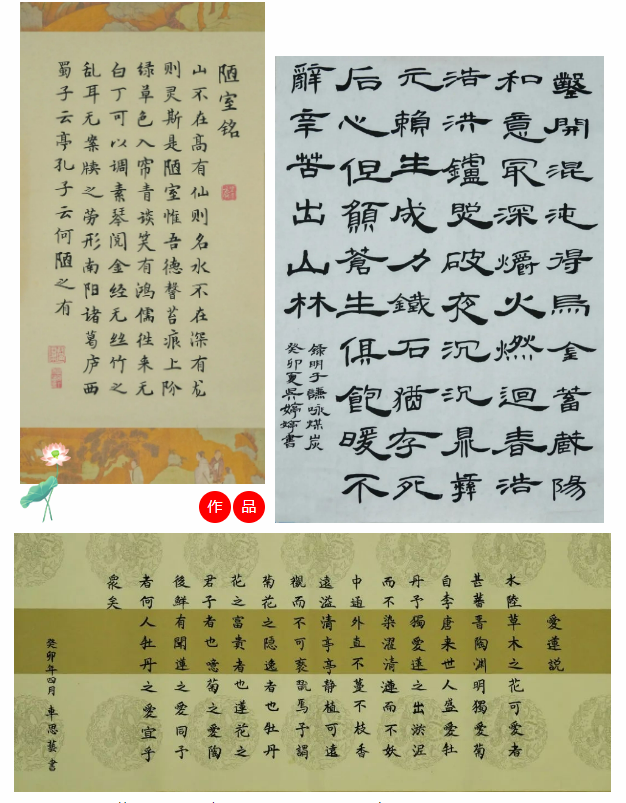 陋室铭
山不在高有仙则名水不在深有龙
则灵斯是陋室惟吾德馨苔痕上阶
绿草色入帘青谈笑有鸿儒往来无
白丁可以调素琴阅金经无丝竹之
乱耳无案牍之劳形南阳诸葛庐西
蜀子云亭孔子云何陋之有
作品
鑿開混沌得烏金蓄藏陽
和意冣深爝火燃迴春浩
浩洪鑪照破夜沉沉鼎彝
元賴生成力鐵石猶存死
后心但願蒼生俱飽暖不
辭辛苦出山林
録明于謙咏煤炭
癸卯夏吴婷婷書
愛蓮説
水陸草木之花可愛者
甚蕃晋陶渊明獨愛菊
自李唐来世人盛愛牡
丹予獨愛蓮之出淤泥
而不染濯清漣而不妖
中通外直不蔓不枝香
遠溢清亭亭静植可遠
觀而不可褻翫焉予謂
菊花之隐逸者也牡丹
花之富貴者也蓮花之
君子者也噫菊之愛陶
後鮮有聞蓮之愛同予
者何人牡丹之愛宜乎
衆矣
癸卯年四月 車思藝書